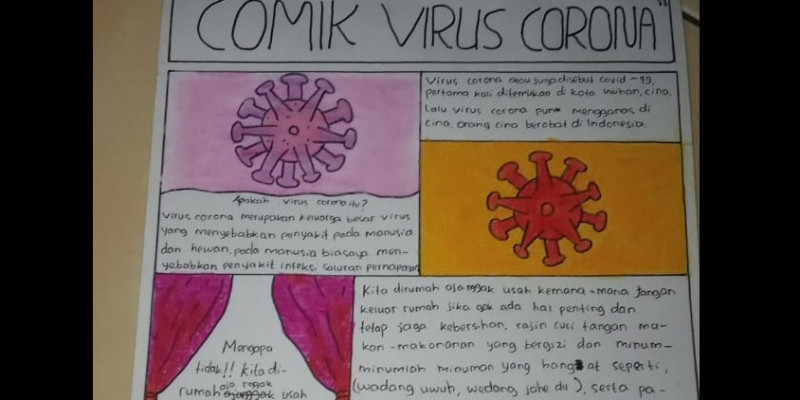 COMIK VIRUS CORONA"
Virus corona atau juga disebut covid-19,
pertama kali ditemukan di kota wuhan, cina.
Lalu virus corona pun mengganas di
cina, orang cina berobat di Indonesia.
Apakah virus corona itu?
Virus corona merupakan keluarga besar virus
yang menyebabkan penyakit pada manusia
dan hewan, pada manusia biasaya men-
yebabkan penyakit infeksi saluran pernapasan
Kita dirumah aja nggak usah kemana-mana jangan
keluar rumah jika gak ada hal penting dan
tetap jaga kebersihan, rajin cuci tangan ma-
kan-makanan yang bergizi dan minum-
minumlah minuman yang hangat seperti,
(wadang uwuh, wedang jahe dll), serta pa-
Mengapa
tidak!! kita di-
rumah aja nggak usah